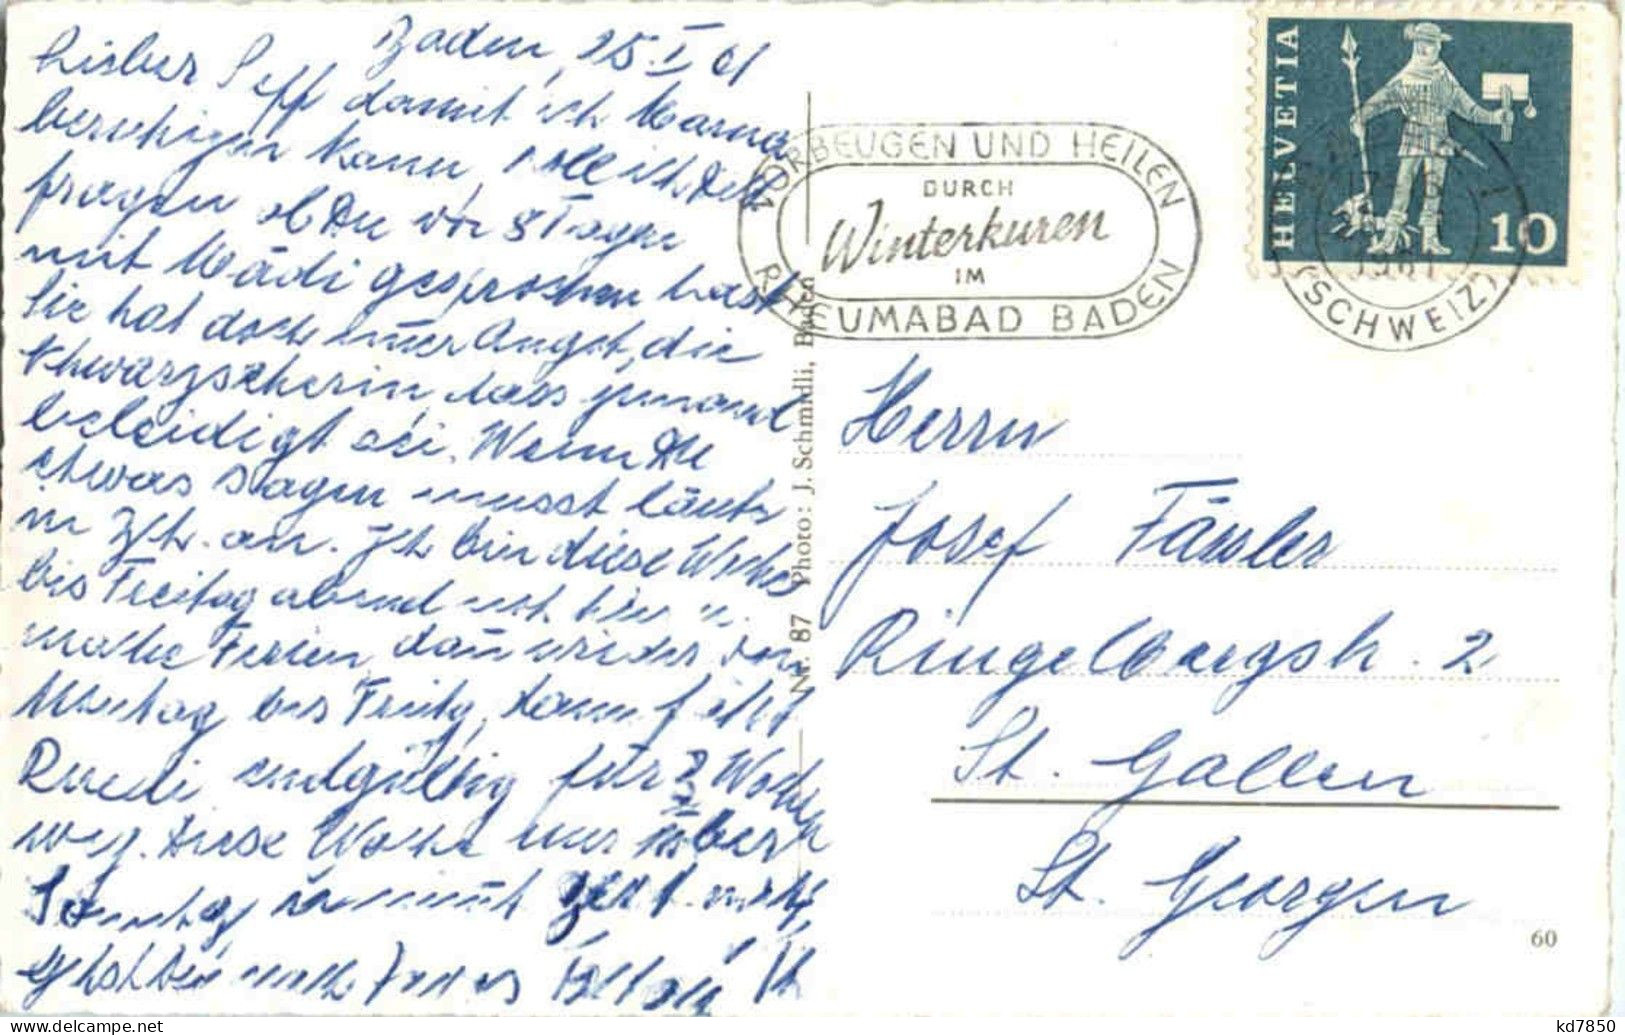 Baden, 25.I 61
Lieber Seff damit ich Mama
beruhigen kann, soll ich Dich
fragen ob Du vor 8 Tagen
mit Mädi gesprochen hast
Sie hat doch immer Angst, die
Schwarzseherin dass jemand
beleidigt sei. Wenn Du
etwas sagen musst läute
in Zch. an. Ich bin diese Woche
bis Freitag abend noch hier u.
mache Ferien, dann wieder von
Montag bis Freitag, dann
Ruedi endgültig für 3 Wochen
weg. Diese Woche nur über
Sonntag
VORBEUGEN UND HEILEN
DURCH
Winterkuren
IM
RHEUMABAD BADEN
HELVETIA
10
1961
(SCHWEIZ)
Nr. 87 Photo: J. Schmidli, Baden
Herrn
Josef Fässler
Ringelbergstr. 2
St. Gallen
St. Georgen
60
kd7850